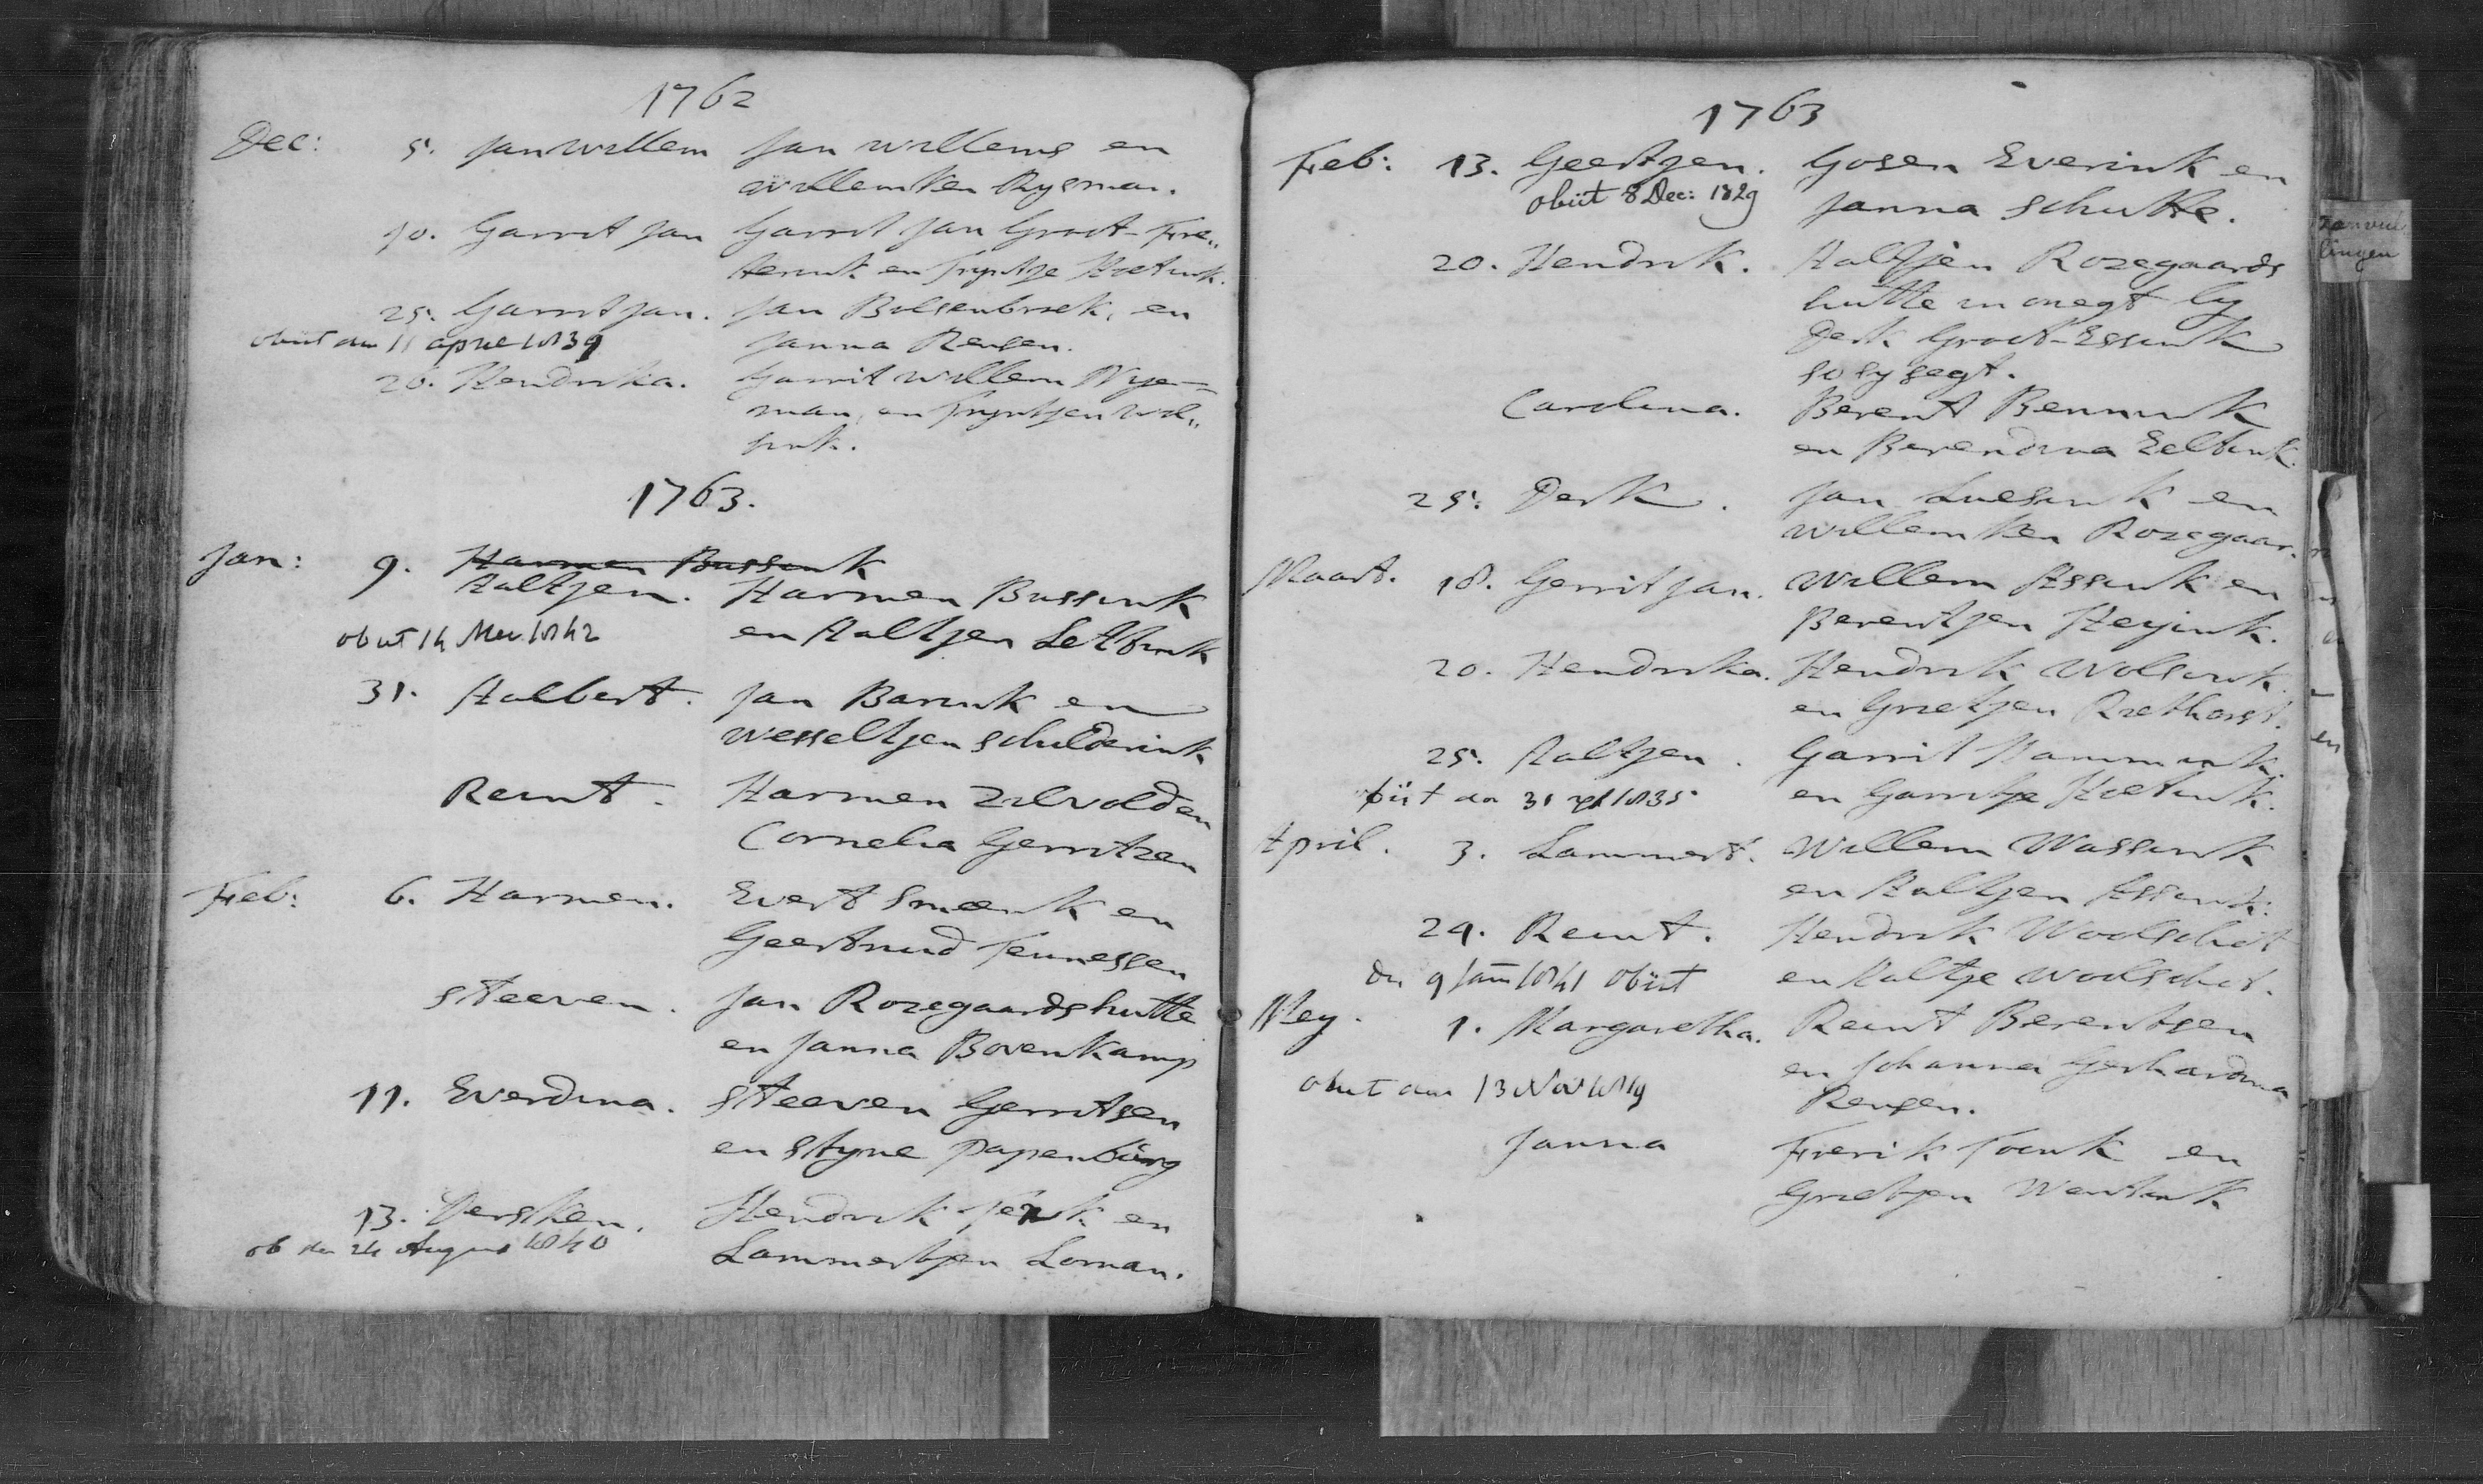 1762
Dec: 5. Jan Willem Jan Willems en
Willemken Rysman.
10. Garrit Jan Garrit Jan Groot-Fre„
Hoetink.
25. Garrit Jan. Jan Bolsenbroek, en
obiit den 11 april 1839 Janna Rensen.
26. Hendrika. Garrit Willem Nye-
man, en Tryntjen Wil„
sink.
1763.
Jan: 9. Harmen Bussink
Aaltjen. Harmen Bussink
obiit 14 Mei 1842 en Aaltjen
31. Aalbert. Jan Barink en
Wesseltjen Schilderink
Reint. Harmen Zilvolden
Cornelia Gerritzen
Feb: 6. Harmen. Evert Smeenk en
Geertruid Teunessen
Steeven. Jan Rozegaardshutte
en Janna Bovenkamp
11. Everdina. Steeven Gerritsen
en Styne Papenbürg
13. Hendrik en
ob den 24 August 1840 Lammertjen Loman.
1763
Feb: 13. Geertjen. Gosen Everink en
obiit 8 Dec: 1829 Janna Schutte.
20. Hendrik. Aaltjen Rozegaards
hutte in onegt by
Derk Groot-Essink
so sy segt.
Carolina. Berent Bennink
en Berendina
25. Derk. Jan Luesink en
Willemken Rozegaar.
Maart. 18. Gerrit Jan. Willem Assink en
Berentjen Heyink.
20. Hendrika. Hendrik Wolsink
en Grietjen Riethorst.
25. Aaltjen. Garrit
obiit den 31 1835 en Garritje Hoetink.
April. 3. Lammert. Willem Wassink
en Aaltjen Assink.
24. Reint. Hendrik Woolschot
den 9 Jann 1841 obiit en Aaltje Woolschot.
Mey. 1. Margaretha. Reint Berentsen
en Johanna Gerhardina
obiit den 13 Nov 1819 Rensen.
Janna Frerik en
Grietjen Wentink
Aanvul
lingen